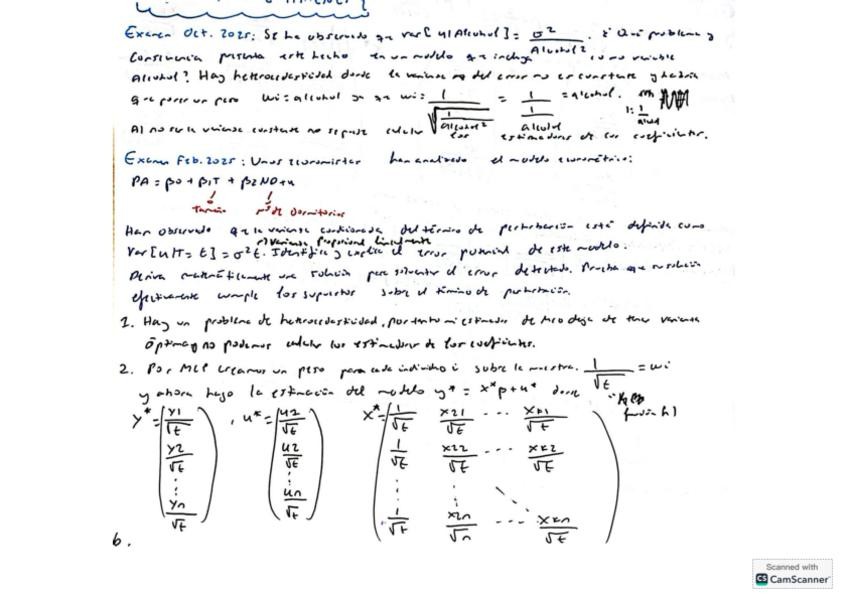 Examen Oct. 2025: Se ha observado que var[u|Alcohol] = σ²/Alcohol². ¿Qué problema y
consecuencia presenta este hecho en un modelo que incluya como variable
Alcohol? Hay heterocedasticidad donde la varianza del error no es constante y habría
que poner un peso wi = alcohol ya que wi = 1/√(1/alcohol²) = 1/(1/alcohol) = alcohol.
Al no ser la varianza constante no se puede calcular los estimadores de los coeficientes.
Examen Feb. 2025: Unos economistas han analizado el modelo econométrico:
PA = β0 + β1T + β2ND + u
Tamaño nº de Dormitorios
Han observado que la varianza condicionada del término de perturbación está definida como
varianza proporcional linealmente
Var[u|T = t] = σ²t. Identifica y explica el error potencial de este modelo.
Deriva matemáticamente una solución para solventar el error detectado. Prueba que su solución
efectivamente cumple los supuestos sobre el término de perturbación.
1. Hay un problema de heterocedasticidad, por tanto mi estimador de MCO deja de tener varianza
óptima y no podemos calcular los estimadores de los coeficientes.
2. Por MCP creamos un peso para cada individuo i sobre la muestra. 1/√t = wi
y ahora hago la estimación del modelo y* = x*β + u* donde
función h)
y* = (y1/√t y2/√t ⋮ yn/√t), u* = (u1/√t u2/√t ⋮ un/√t) x* = (1/√t x21/√t ... xk1/√t
1/√t x22/√t ... xk2/√t
⋮ ⋮ ⋱
1/√t x2n/√n ... xkn/√t)
6.
Scanned with
CS CamScanner